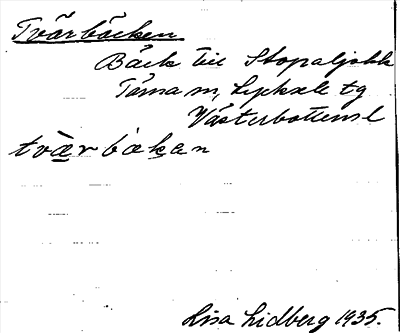 Tvärbäcken
Bäck till Stopaljokk
Tärna sn, Lycksele tg
Västerbottens l
tvæ̀rbækan
Lisa Lidberg 1935.